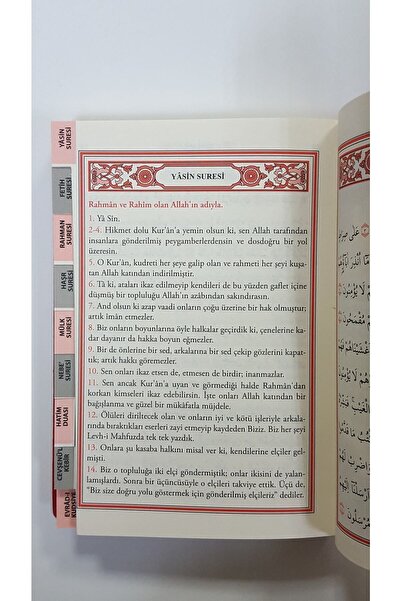 YÂSİN SURESİ
FETİH SURESİ
RAHMAN SURESİ
HAŞR SURESİ
MÜLK SURESİ
NEBE' SURESİ
HATİM DUASI
CEVŞENÜ'L KEBİR
EVRAD-I KUDSİYE
YÂSİN SURESİ
Rahmân ve Rahîm olan Allah'ın adıyla.
1. Yâ Sîn.
2-4. Hikmet dolu Kur'ân'a yemin olsun ki, sen Allah tarafından
insanlara gönderilmiş peygamberlerdensin ve dosdoğru bir yol
üzeresin.
5. O Kur'ân, kudreti her şeye galip olan ve rahmeti her şeyi kuşa-
tan Allah katından indirilmiştir.
6. Tâ ki, ataları ikaz edilmeyip kendileri de bu yüzden gaflet içine
düşmüş bir topluluğu Allah'ın azâbından sakındırasın.
7. And olsun ki azap vaadi onların çoğu üzerine bir hak olmuştur;
artık iman etmezler.
8. Biz onların boyunlarına öyle halkalar geçirdik ki, çenelerine ka-
dar dayanır da hakka boyun eğmezler.
9. Bir de önlerine bir sed, arkalarına bir sed çekip gözlerini kapat-
tık; artık hakkı göremezler.
10. Sen onları ikaz etsen de, etmesen de birdir; inanmazlar.
11. Sen ancak Kur'ân'a uyan ve görmediği halde Rahmân'dan
korkan kimseleri ikaz edebilirsin. İşte onları Allah katından bir
bağışlanma ve güzel bir mükâfatla müjdele.
12. Ölüleri diriltecek olan ve onların iyi ve kötü işleriyle arkala-
rında bıraktıkları eserleri zayi etmeyip kaydeden Biziz. Biz her şeyi
Levh-i Mahfuzda tek tek yazdık.
13. Onlara şu kasaba halkını misal ver ki, kendilerine elçiler gel-
mişti.
14. Biz o topluluğa iki elçi göndermiştik; onlar ikisini de yalan-
lamışlardı. Sonra bir üçüncüsüyle o elçileri takviye ettik. Üçü de,
"Biz size doğru yolu göstermek için gönderilmiş elçileriz" dediler.